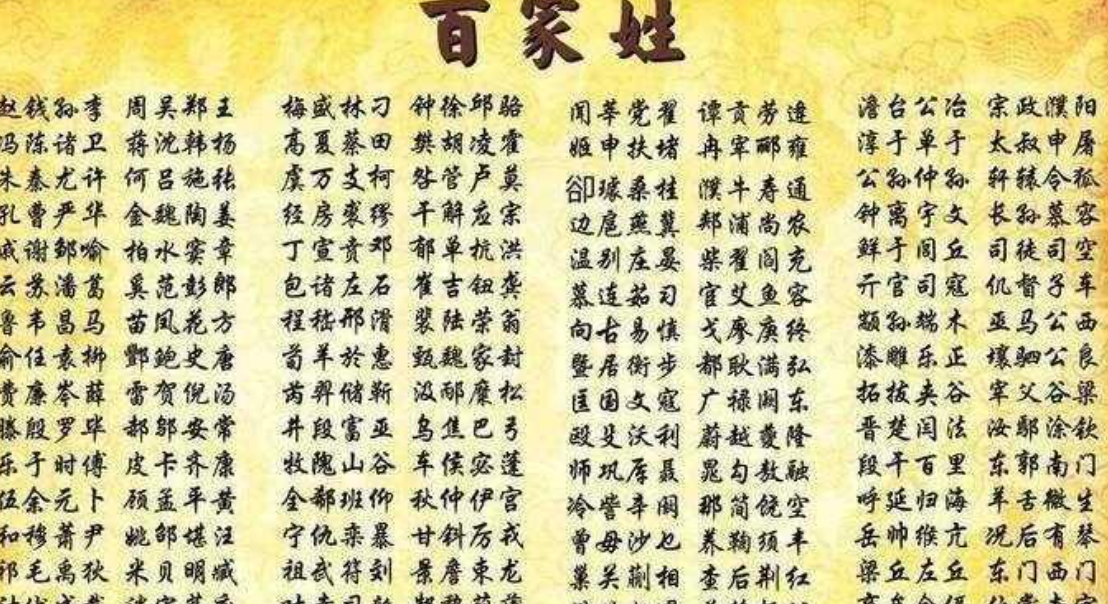 百家姓
赵钱孙李 周吴郑王 梅盛林刁 钟徐邱骆 闻莘党翟 谭贡劳逄 澹台公冶 宗政濮阳
冯陈诸卫 蒋沈韩杨 高夏蔡田 樊胡凌霍 姬申扶堵 冉宰郦雍 淳于单于 太叔申屠
朱秦尤许 何吕施张 虞万支柯 昝管卢莫 郤璩桑桂 濮牛寿通 公孙仲孙 轩辕令狐
孔曹严华 金魏陶姜 经房裘缪 干解应宗 边扈燕冀 郏浦尚农 钟离宇文 长孙慕容
戚谢邹喻 柏水窦章 丁宣贲邓 郁单杭洪 温别庄晏 柴瞿阎充 鲜于闾丘 司徒司空
云苏潘葛 奚范彭郎 包诸左石 崔吉钮龚 慕连茹习 宦艾鱼容 亓官司寇 仉督子车
鲁韦昌马 苗凤花方 程嵇邢滑 裴陆荣翁 向古易慎 戈廖庚终 颛孙端木 巫马公西
俞任袁柳 酆鲍史唐 荀羊於惠 甄魏家封 暨居衡步 都耿满弘 漆雕乐正 壤驷公良
费廉岑薛 雷贺倪汤 芮羿储靳 汲邴糜松 匡国文寇 广禄阙东 拓拔夹谷 宰父谷梁
滕殷罗毕 郝邬安常 井段富巫 乌焦巴弓 殴殳沃利 蔚越夔隆 晋楚闫法 汝鄢涂钦
乐于时傅 皮卞齐康 牧隗山谷 车侯宓蓬 师巩厍聂 晁勾敖融 段干百里 东郭南门
伍余元卜 顾孟平黄 全郗班仰 秋仲伊宫 冷訾辛阚 那简饶空 呼延归海 羊舌微生
和穆萧尹 姚邵堪汪 宁仇栾暴 甘斜厉戎 曾毋沙乜 养鞠须丰 岳帅缑亢 况后有琴
祁毛禹狄 米贝明臧 祖武符刘 景詹束龙 巢关蒯相 查后荆红 梁丘左丘 东门西门